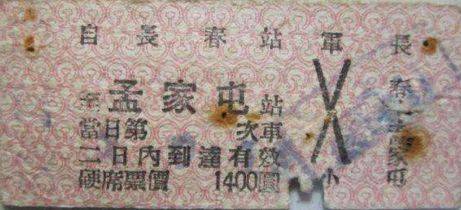 自長春站
至孟家屯站
當日第 次車
二日內到達有效
硬席票價 1400圓
軍
小
長春 孟家屯